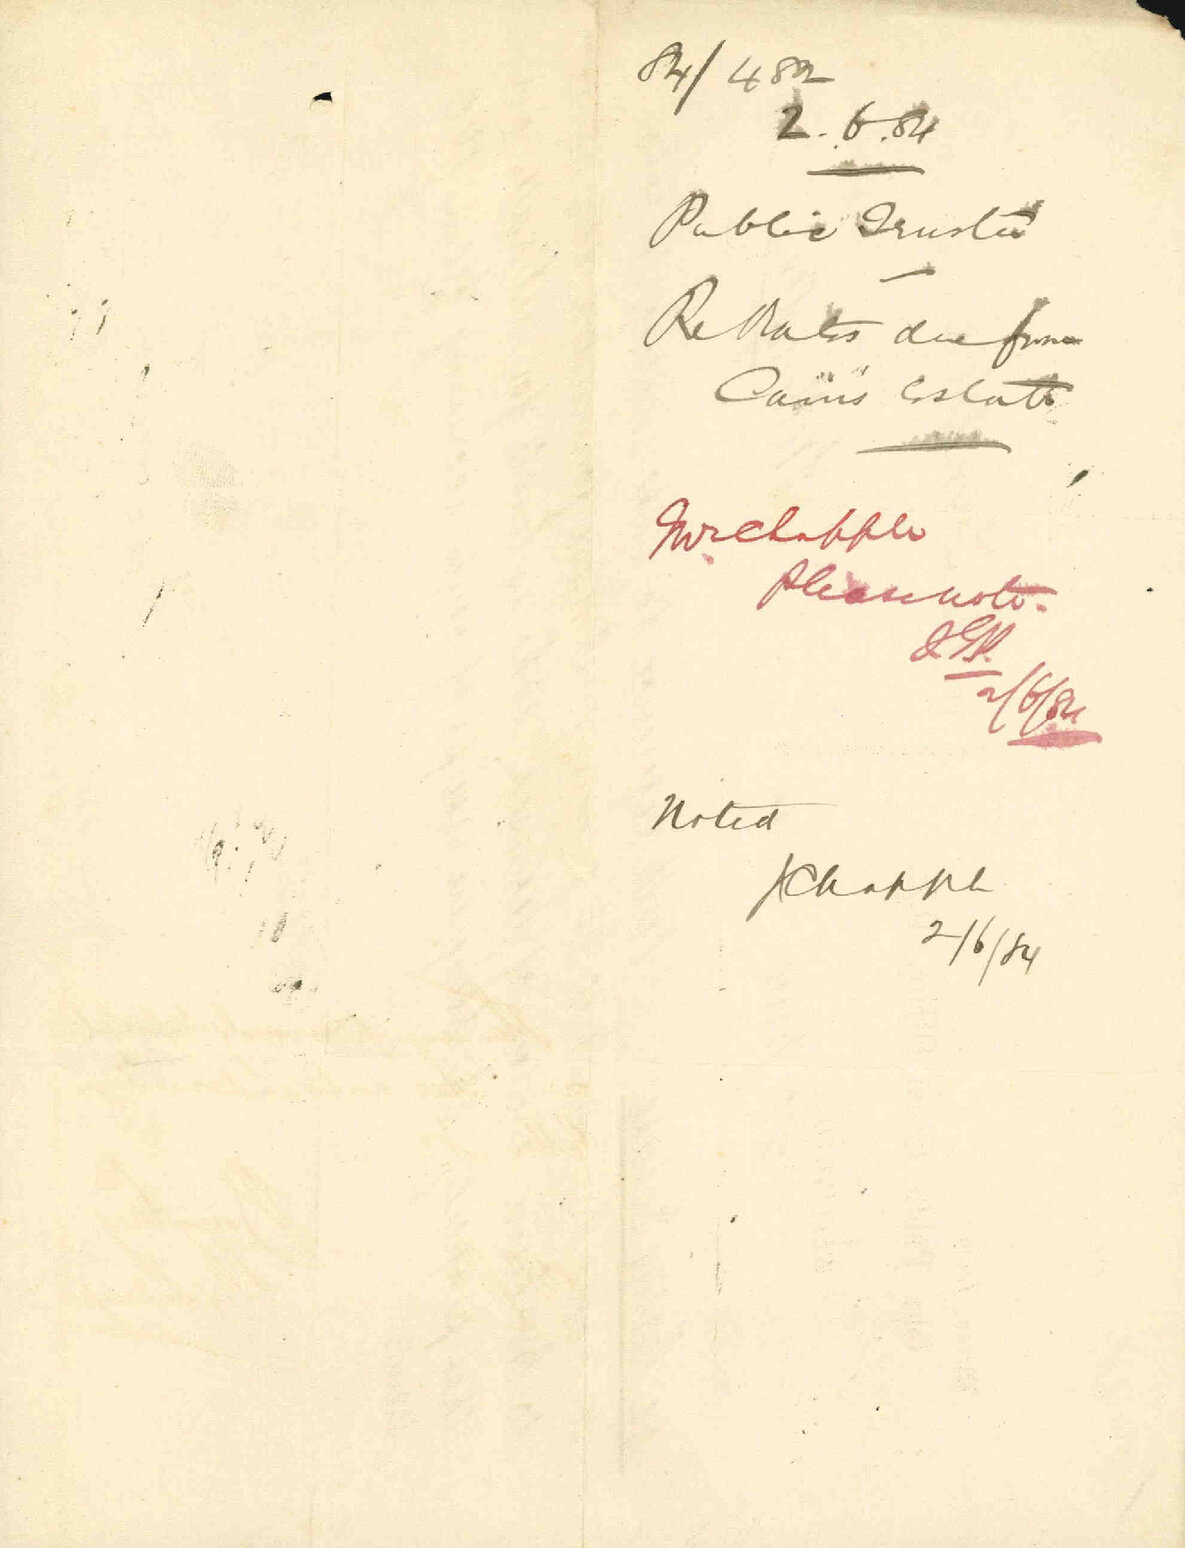 84/482
2.6.84
Public Trustee
Re Rates due from
Cain's Estate
Mr Chapple
Please note.
2/6/84
Noted
J Chapple
2/6/84